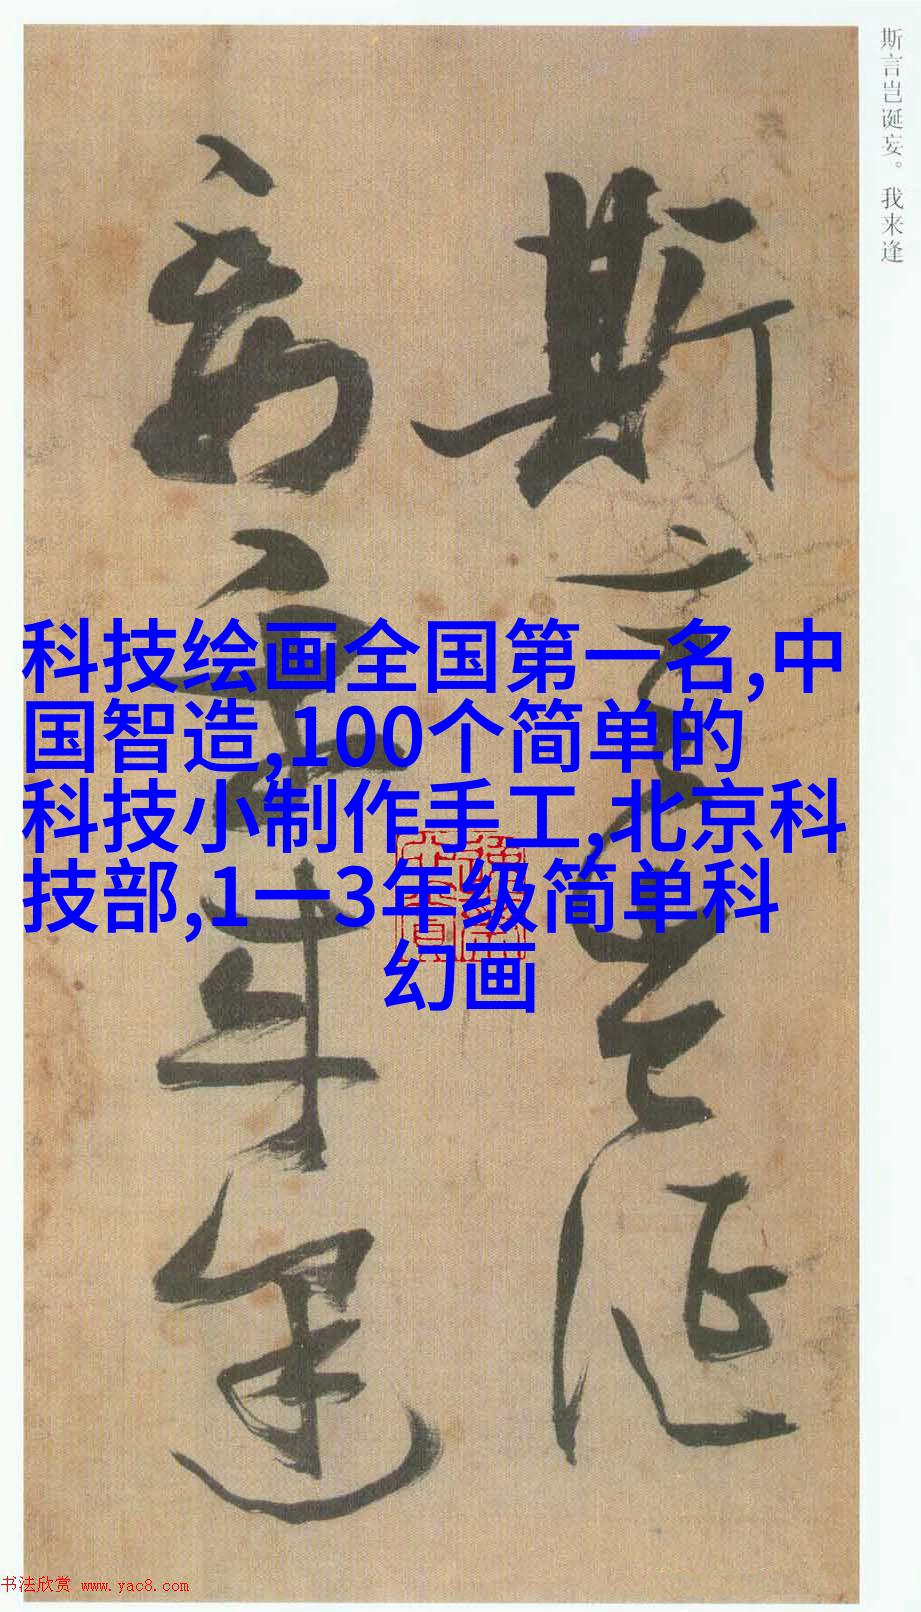 斯言岂诞妄。我来逢
斯言豈誕
妄我来逢
科技绘画全国第一名,中
国智造,100个简单的
科技小制作手工,北京科
技部,1一3年级简单科
幻画
书法欣赏 www.yac8.com